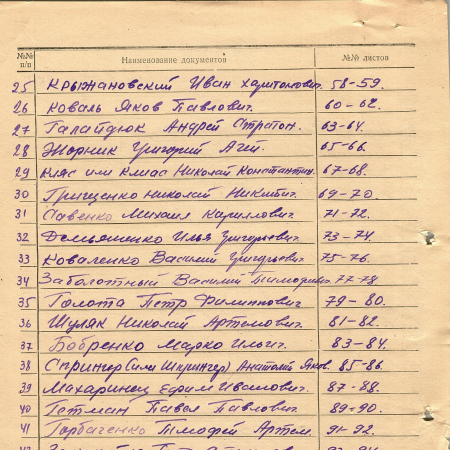 №№ п/п Наименование документов №№ листов
25 Крыжановский Иван Харитонович. 58-59.
26 Коваль Яков Павлович. 60-62.
27 Галайдюк Андрей Стратон. 63-64.
28 Жорник Григорий 65-66.
29 Кляс или Клиас Николай Константин. 67-68.
30 Грищенко Николай Никитич. 69-70.
31 Савенко Михаил Кириллович. 71-72.
32 Демьяненко Илья Григорьевич 73-74.
33 Коваленко Василий Григорьевич 75-76.
34 Заболотный Василий Тимофеевич 77-78
35 Голота Петр Филиппович 79-80.
36 Шуляк Николай Артемович. 81-82.
37 Бобренко Марко Ильич. 83-84.
38 Спрингер (или Шпрингер) Анатолий Яков. 85-86.
39 Махаринец Ефим Иванович. 87-88.
40 Гетман Павел Павлович. 89-90.
41 Горбаченко Тимофей Артем. 91-92.